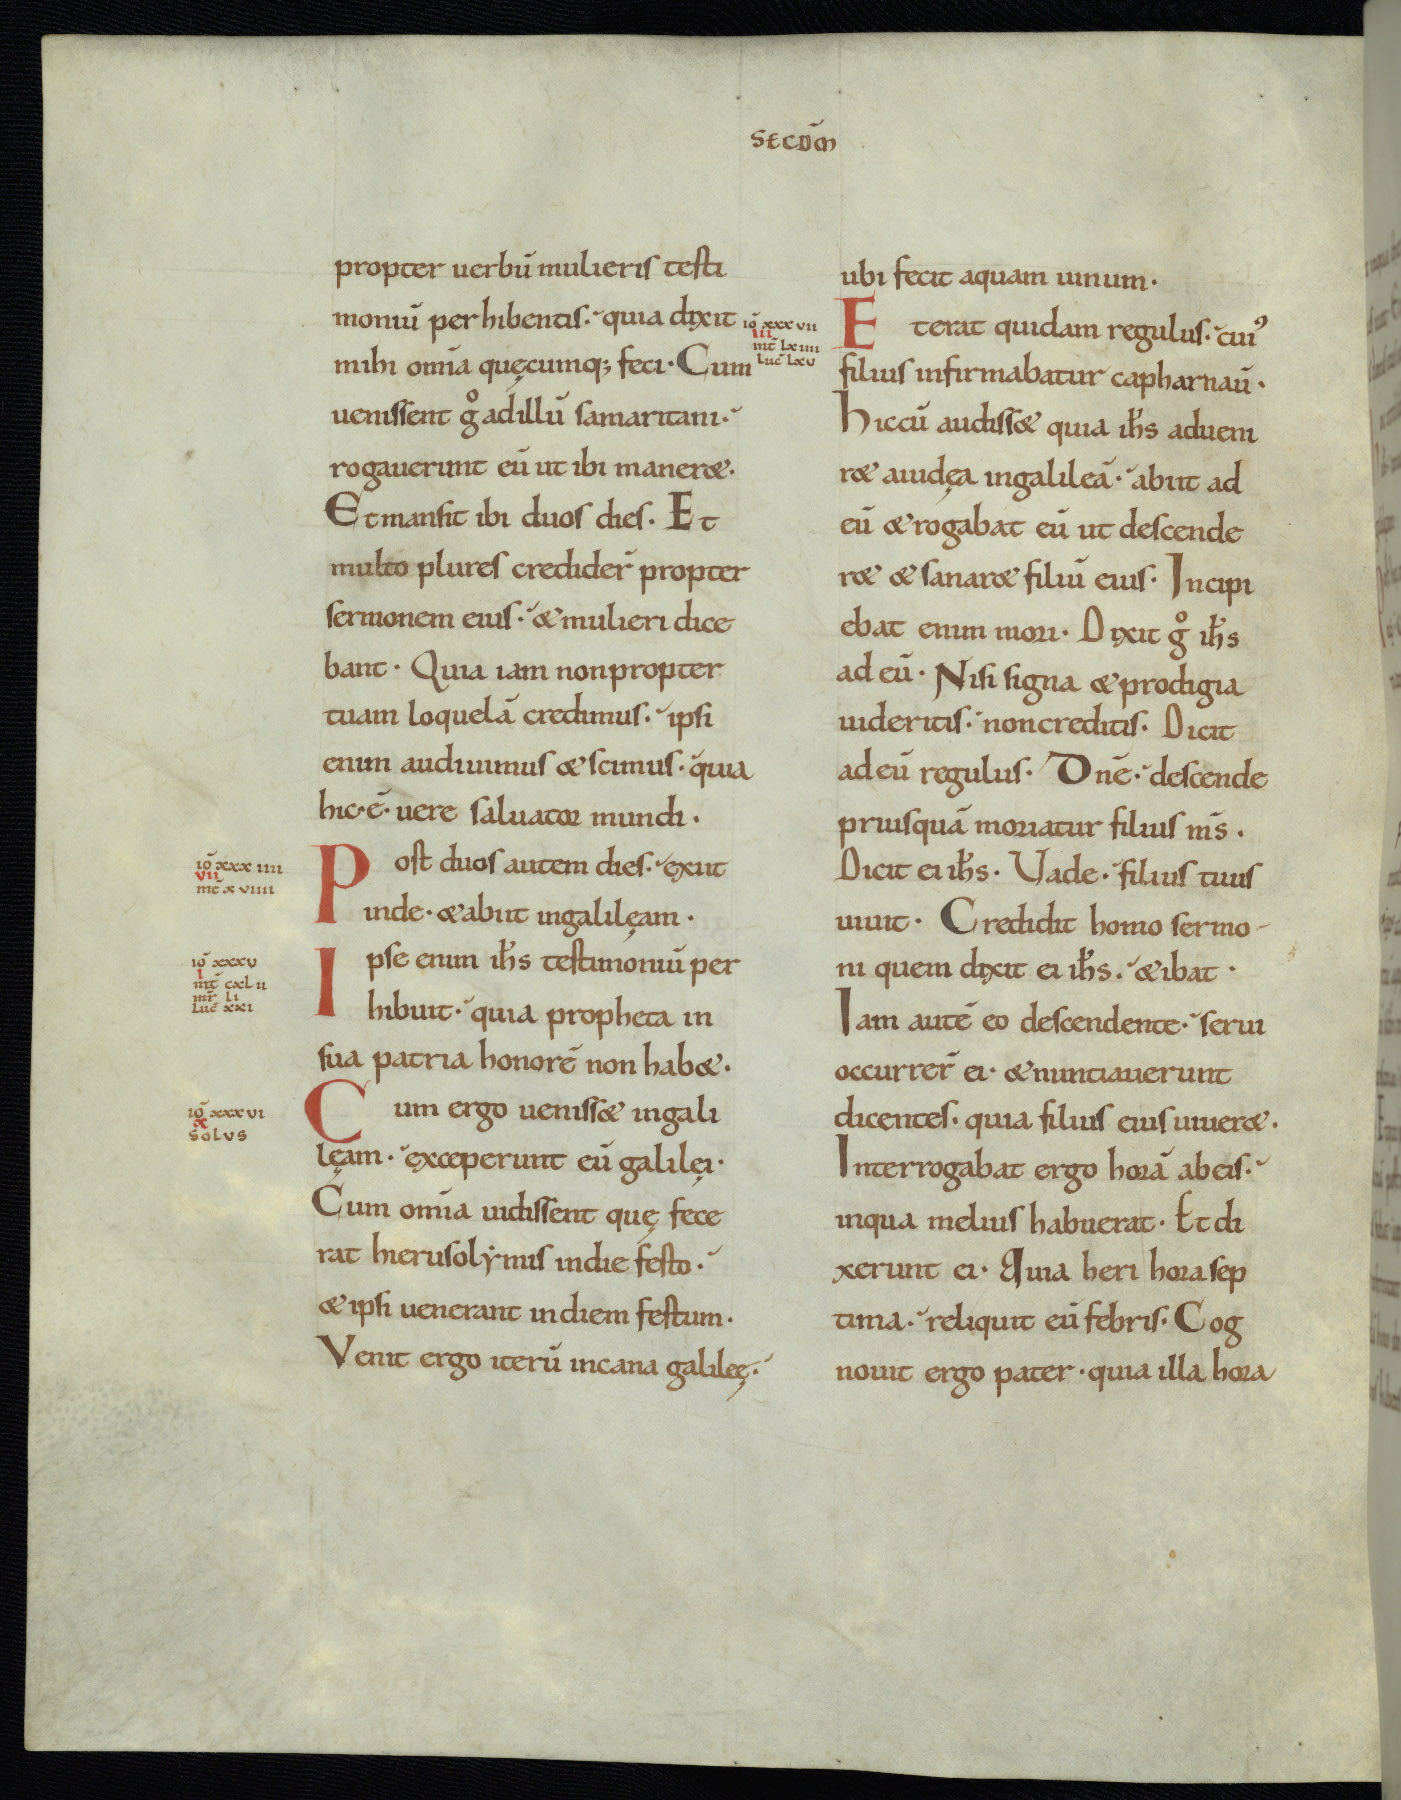 SECDM̄
propter uerbū mulieris testi
moniū perhibentis· quia dixit
mihi om̄ia quęcumq; feci· Cum
uenissent gͦ adillū samaritani·
rogauerunt eū ut ibi maner&·
Etmansit ibi duos dies· Et
multo plures credider̄ propter
sermonem eius· & mulieri dice
bant· Quia iam nonpropter
tuam loquelā credimus· ipsi
enim audiuimus & scimus· quia
hic·ē· uere saluator mundi·
iō xxxiiii
vii
mt̄ xviiii
Post duos autem dies· exiit
inde· &abiit ingalilęam·
iō xxxv
i
mt̄ cxlii
mr̄ li
luc̄ xxi
Ipse enim ih̄s testimoniū per
hibuit· quia propheta in
sua patria honorē non hab&·
iō xxxvi
x
solus
Cum ergo ueniss& ingali
lęam· exceperunt eū galilęi·
Cum om̄ia uidissent quę fece
rat hierusolẏmis indie festo·
& ipsi uenerant indiem festum·
Venit ergo iterū incana galileę·
ubi fecit aquam uinum·
iō xxxvii
iii
mt̄ lxiiii
luc̄ lxv
Et erat quidam regulus· cuiꝰ
filius infirmabatur capharnaū·
hiccū audiss& quia ih̄s adueni
r& aiudęa ingalileā· abiit ad
eū & rogabat eū ut descende
r& & sanar& filiū eius· Incipi
ebat enim mori· Dixit gͦ ih̄s
ad eū· Nisi signa & prodigia
uideritis· noncreditis· Dicit
ad eū regulus· Dn̄e· descende
priusquā moriatur filius m̄s·
Dicit ei ih̄s· Vade· filius tuus
uiuit· Credidit homo sermo-
ni quem dixit ei ih̄s· & ibat·
Iam autē eo descendente· serui
occurrer̄ ei· & nuntiauerunt
dicentes· quia filius eius uiuer&·
Interrogabat ergo horā ab eis·
inqua melius habuerat· Et di
xerunt ei· Quia heri hora sep
tima· reliquit eū febris· Cog
nouit ergo pater· quia illa hora